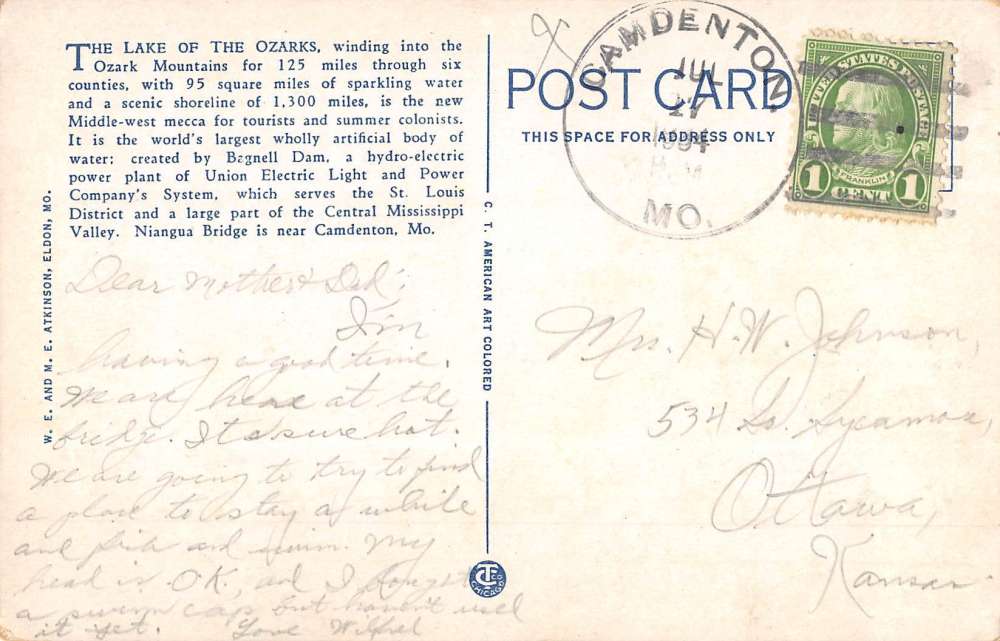 THE LAKE OF THE OZARKS, winding into the
Ozark Mountains for 125 miles through six
counties, with 95 square miles of sparkling water
and a scenic shoreline of 1,300 miles, is the new
Middle-west mecca for tourists and summer colonists.
It is the world's largest wholly artificial body of
water; created by Bagnell Dam, a hydro-electric
power plant of Union Electric Light and Power
Company's System, which serves the St. Louis
District and a large part of the Central Mississippi
Valley. Niangua Bridge is near Camdenton, Mo.
W. E. AND M. E. ATKINSON, ELDON, MO.
Dear Mother & Dad:
I'm
having a good time.
We are here at the
bridge. It is sure hot.
We are going to try to find
a place to stay a while
and fish and swim. My
head is O.K. and I bought
a swim cap, but haven't used
it yet. Love Wilfred
C. T. AMERICAN ART COLORED
CT CO
CHICAGO
POST CARD
THIS SPACE FOR ADDRESS ONLY
CAMDENTON
JUL
17
1934
MO.
UNITED STATES POSTAGE
FRANKLIN
1 CENT 1
Mrs. H. W. Johnson,
534 So. Sycamore,
Ottawa,
Kansas